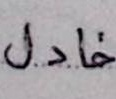 خادل